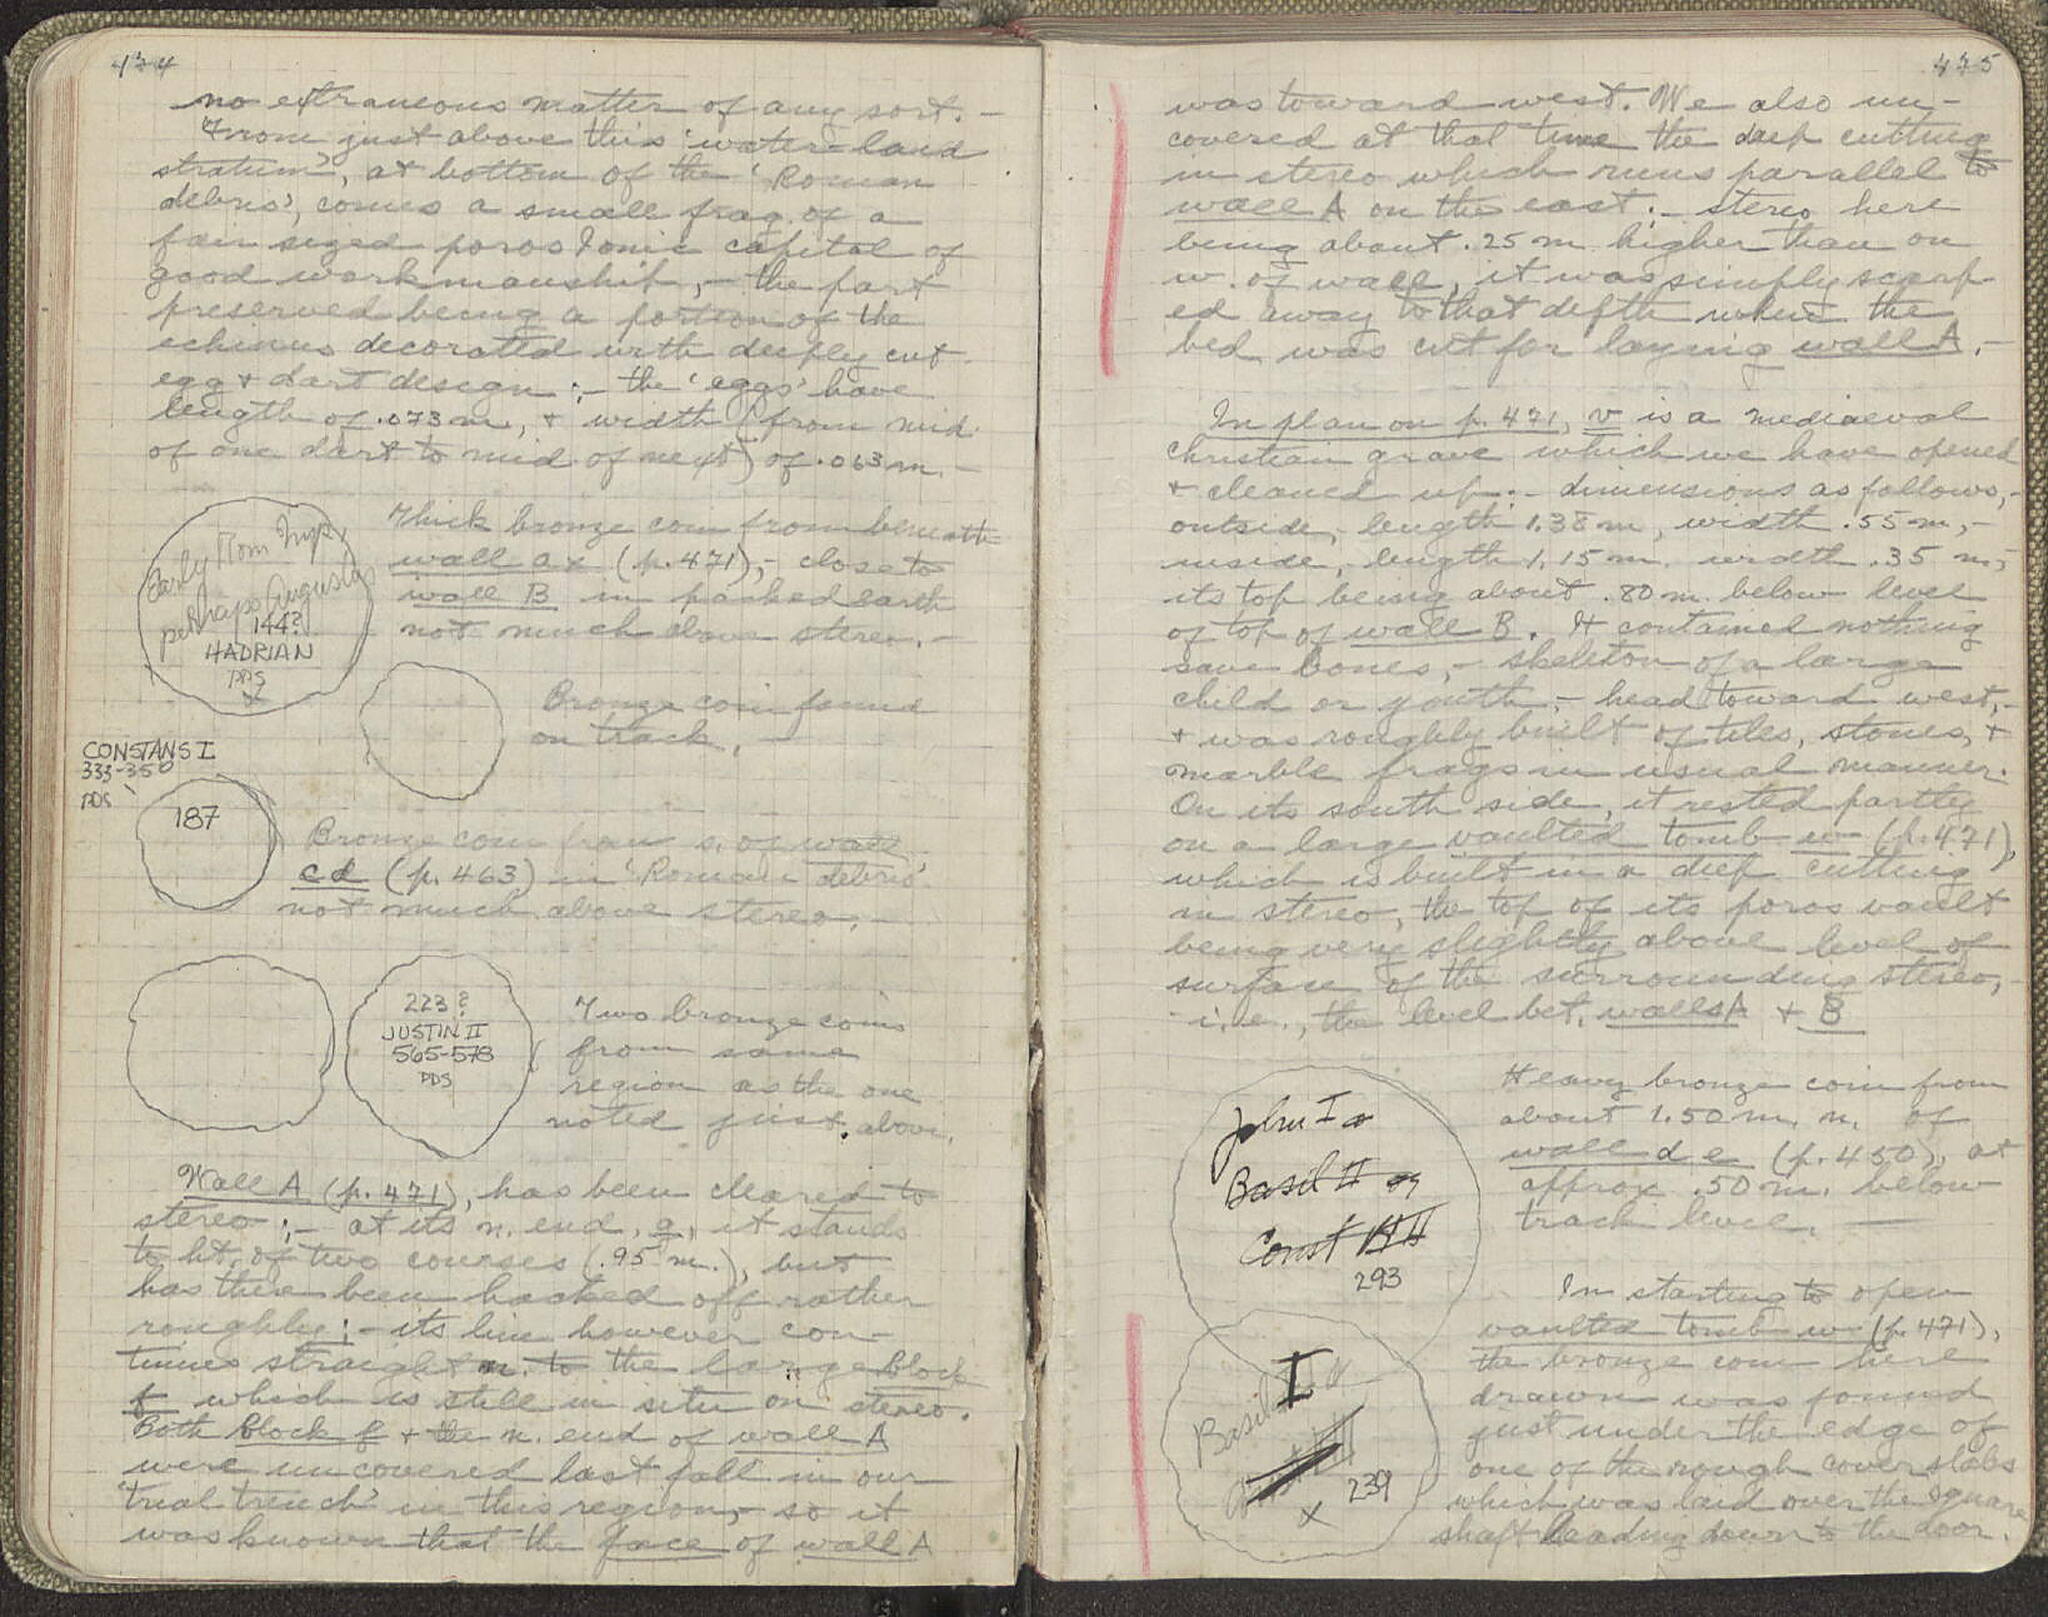 474
no extraneous matter of any sort. —
From just above this 'water-laid
stratum', at bottom of the 'Roman
debris', comes a small frag. of a
fair sized poros Ionic capital of
good workmanship, — the part
preserved being a portion of the
echinus decorated with deeply cut
egg + dart design :— the 'eggs' have
length of .073 m., + width (from mid.
of one dart to mid. of next) of .063 m. —
Early Rom Imp,
perhaps Augustus
144?
HADRIAN
PDS
x
Thick bronze coin from beneath
wall ax (p. 471), — close to
wall B in packed earth
not much above stereo. —
Bronze coin found
on track. —
CONSTANS I
333-350
PDS
187
Bronze coin from s. of wall
cd (p. 463) in 'Roman debris'
not much above stereo. —
223?
JUSTIN II
565-578
PDS
Two bronze coins
from same
region as the one
noted just above.
Wall A (p. 471), has been cleared to
stereo :— at its n. end, a, it stands
to ht. of two courses (.95 m.), but
has there been hacked off rather
roughly :— its line however con-
tinues straight n. to the large block
f which is still in situ on stereo.
Both block f + the n. end of wall A
were uncovered last fall in our
'trial trench' in this region, — so it
was known that the face of wall A
475
was toward west. We also un-
covered at that time the deep cutting
in stereo which runs parallel to
wall A on the east :— stereo here
being about .25 m. higher than on
w. of wall, it was simply scarp-
ed away to that depth when the
bed was cut for laying wall A. —
In plan on p. 471, v is a mediaeval
Christian grave which we have opened
+ cleaned up :— dimensions as follows, —
outside, — length 1.38 m, width .55 m, —
inside, — length 1.15 m. width .35 m, —
its top being about .80 m. below level
of top of wall B. It contained nothing
save bones, — skeleton of a large
child or youth, — head toward west, —
+ was roughly built of tiles, stones, +
marble frags in usual manner.
On its south side, it rested partly
on a large vaulted tomb w (p. 471),
which is built in a deep cutting
in stereo, the top of its poros vault
being very slightly above level of
surface of the surrounding stereo, —
i.e., the level bet. walls A + B
John I or
Basil II or
Const VIII
293
Heavy bronze coin from
about 1.50 m. n. of
wall d e (p. 450), at
approx .50 m. below
track level. —
Basil
I
239
x
In starting to open
vaulted tomb w (p. 471),
the bronze coin here
drawn was found
just under the edge of
one of the rough cover slabs
which was laid over the square
shaft leading down to the door.